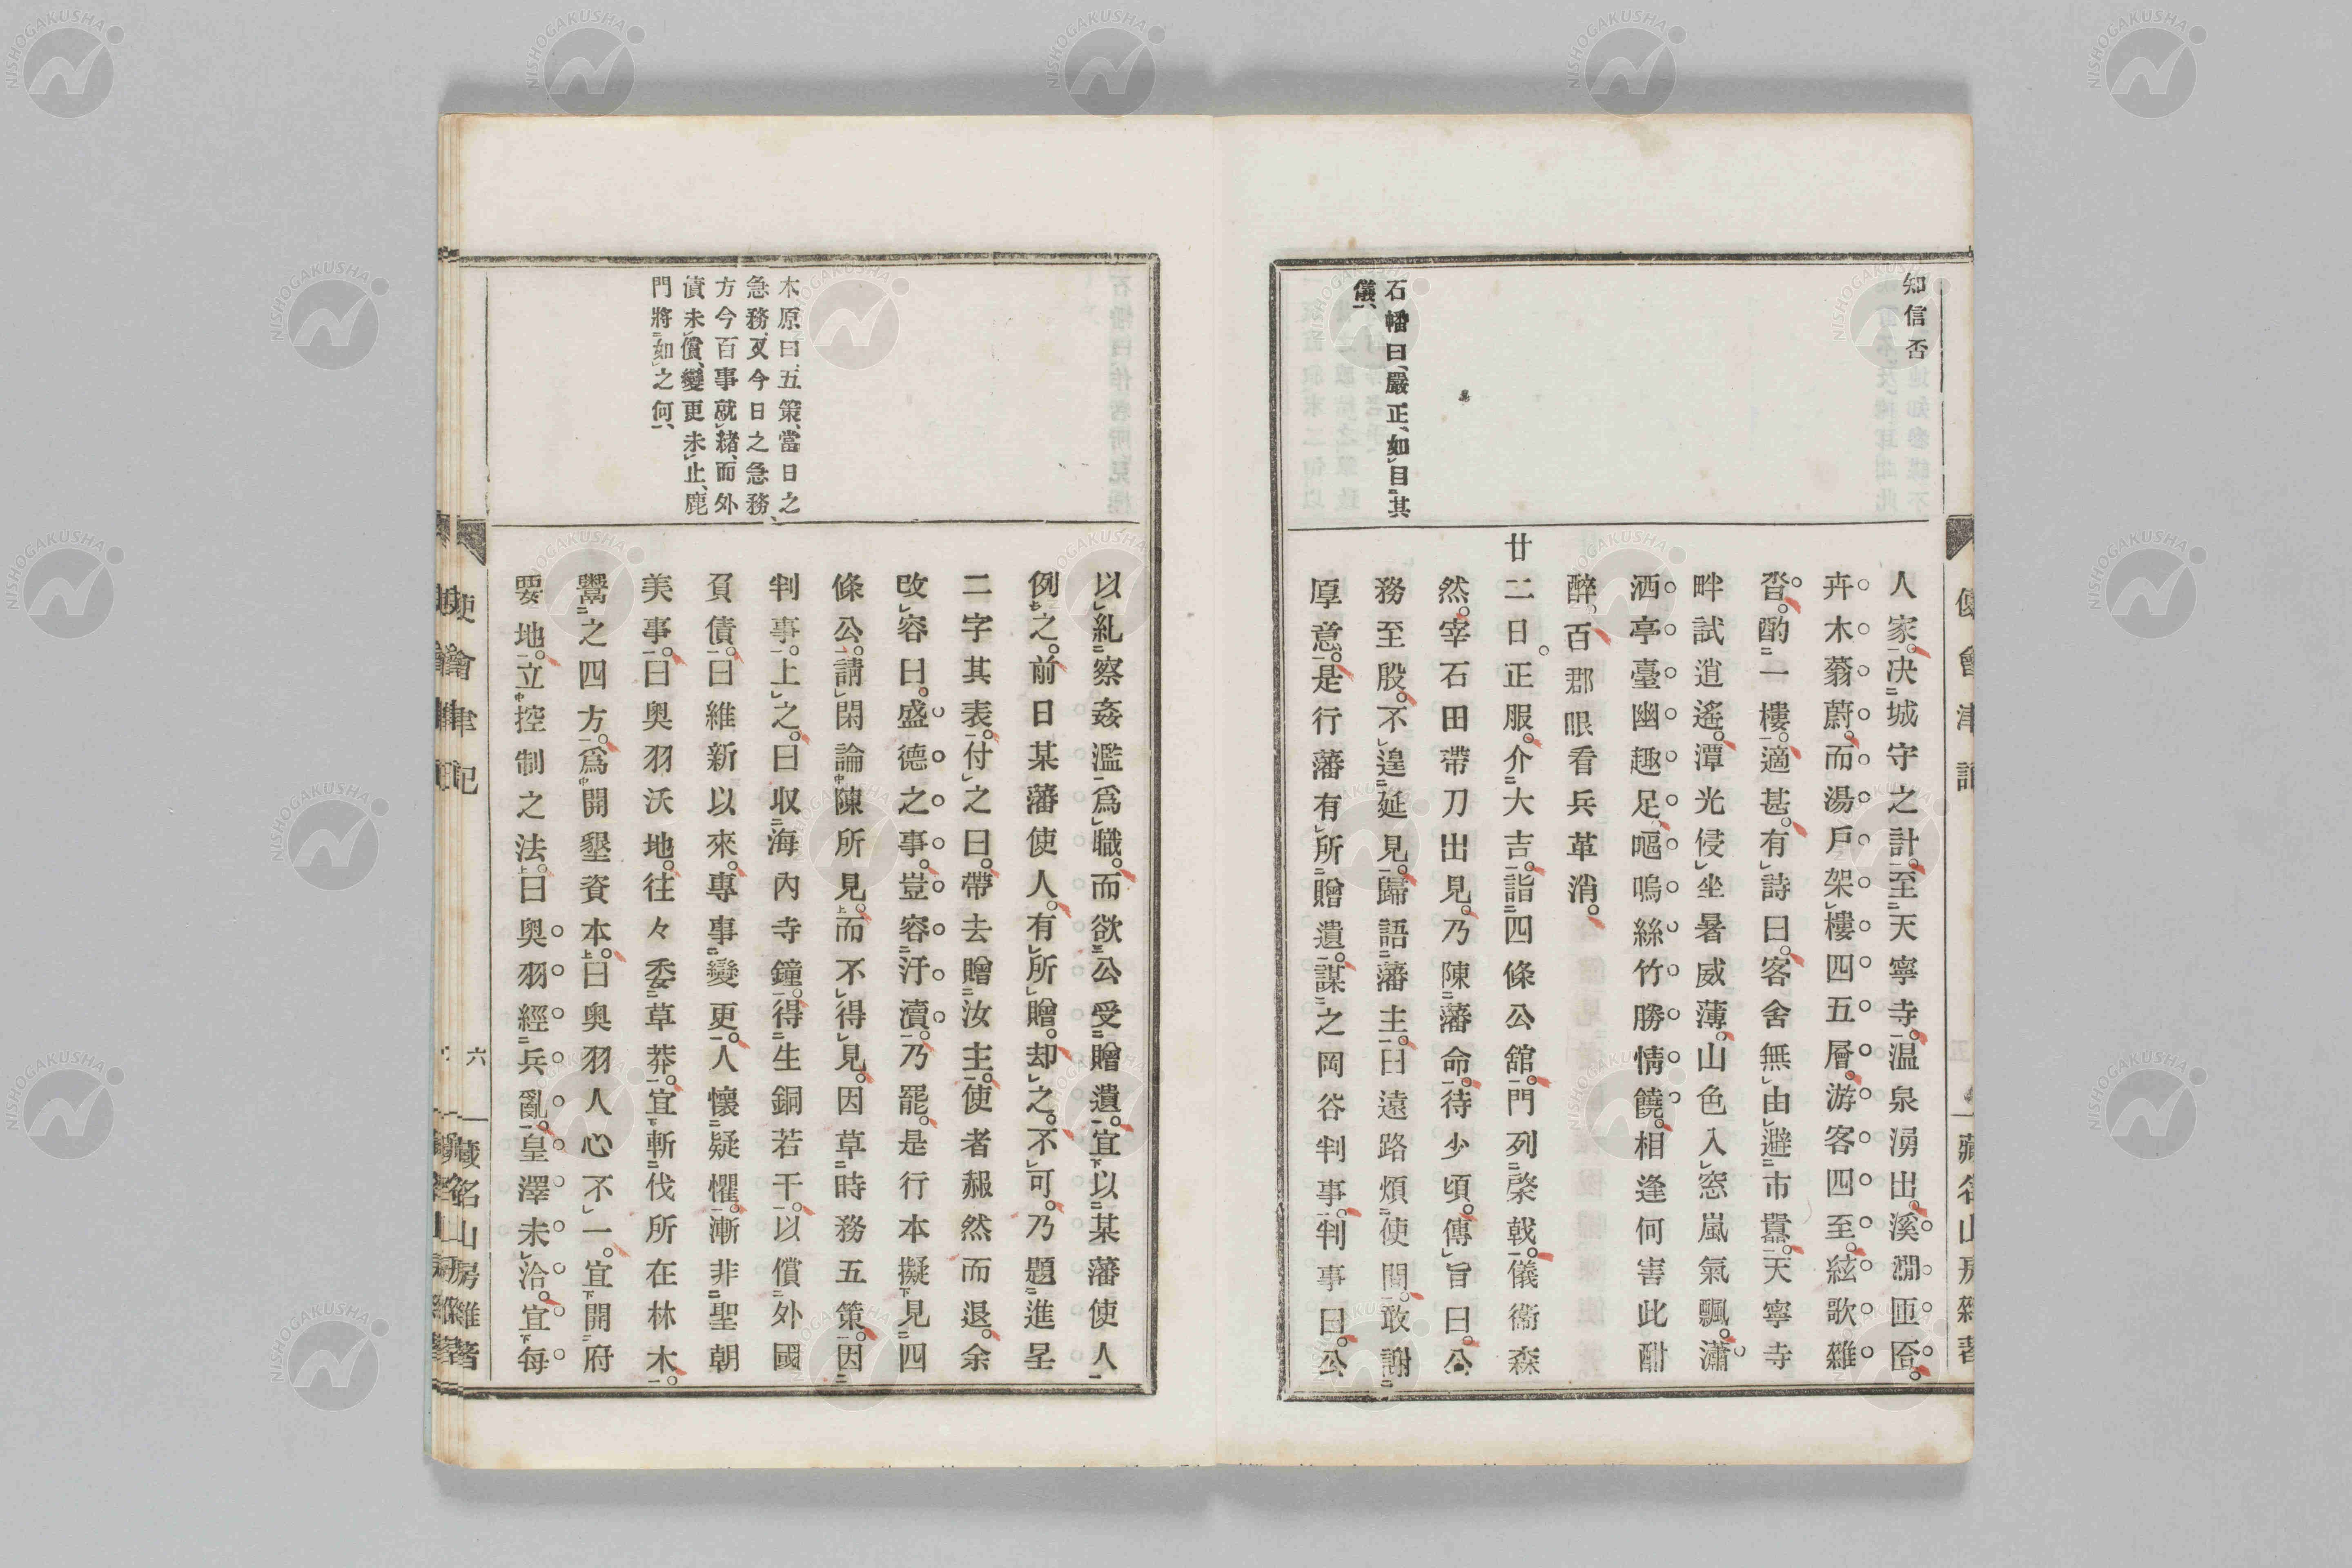 使會津記
藏名山房雜著
知信否
石幡曰、嚴正、如目其
儀、
人家。决城守之計。至天寧寺。温泉湧出。溪澗匝匼。
卉木蓊蔚。而湯戶架樓四五層。游客四至。絃歌雜
沓。酌一樓。適甚。有詩曰。客舍無由避市囂。天寧寺
畔試逍遙。潭光侵坐暑威薄。山色入窓嵐氣飄。瀟
洒亭臺幽趣足。嘔鳴絲竹勝情饒。相逢何害此酣
醉。百郡眼看兵革消。
廿二日。正服。介大吉。詣四條公舘。門列棨戟。儀衞森
然。宰石田帶刀出見。乃陳藩命。待少頃。傳旨曰。公
務至殷。不遑延見。歸語藩主。曰遠路煩使問。敢謝
厚意。是行藩有所贈遺。謀之岡谷判事。判事曰。公
木原曰、五策、當日之
急務、又今日之急務、
方今百事就緒、而外
債未償、變更未止、鹿
門將如之何、
以糺察姦濫爲職。而欲公受贈遺。宜以某藩使人
例之。前日某藩使人。有所贈。却之。不可。乃題進呈
二字其表。付之曰。帶去贈汝主。使者赧然而退。余
改容曰。盛德之事。豈容汙瀆。乃罷。是行本擬見四
條公。請閑論陳所見。而不得見。因草時務五策。因
判事。上之。曰收海內寺鐘。得生銅若干。以償外國
負債。曰維新以來。專事變更。人懷疑懼。漸非聖朝
美事。曰奧羽沃地。往々委草莽。宜斬伐所在林木。
鬻之四方。爲開墾資本。曰奧羽人心不一。宜開府
要地。立控制之法。曰奧羽經兵亂。皇澤未洽。宜每
使會津記
六
藏名山房雜著